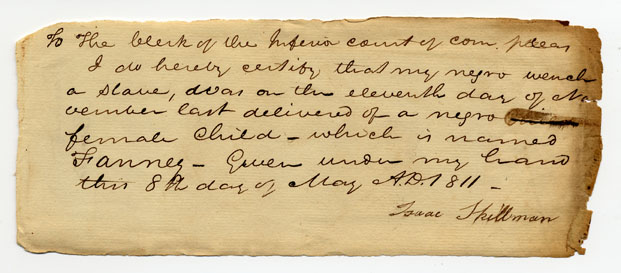 To The Clerk of the Inferior court of com. pleas
I do hereby certify that my negro wench
a slave, was on the eleventh day of No
vember last delivered of a negro
female Child - which is named
Fanney - Given under my hand
this 8th day of May A.D. 1811 -
Isaac Skillman